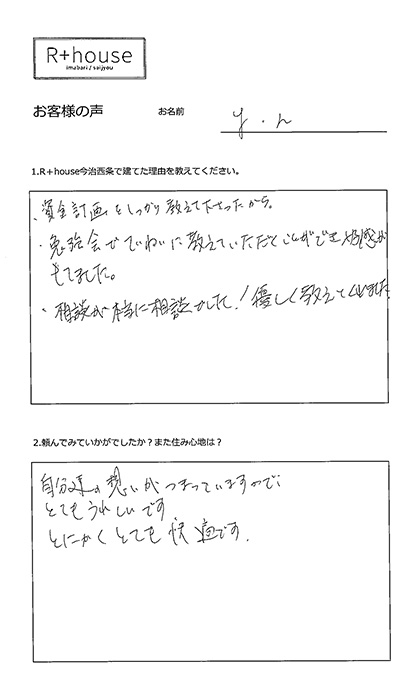 R+house
imabari / saijyou
お客様の声
お名前
y.n
1.R+house今治西条で建てた理由を教えてください。
・資金計画をしっかり教えて下さったから。
・勉強会でていねいに教えていただくことができ好感が
もてました。
・相談が本当に相談でした!優しく教えてくれました
2.頼んでみていかがでしたか?また住み心地は?
自分達の想いがつまっていますので、
とてもうれしいです。
とにかくとても快適です。